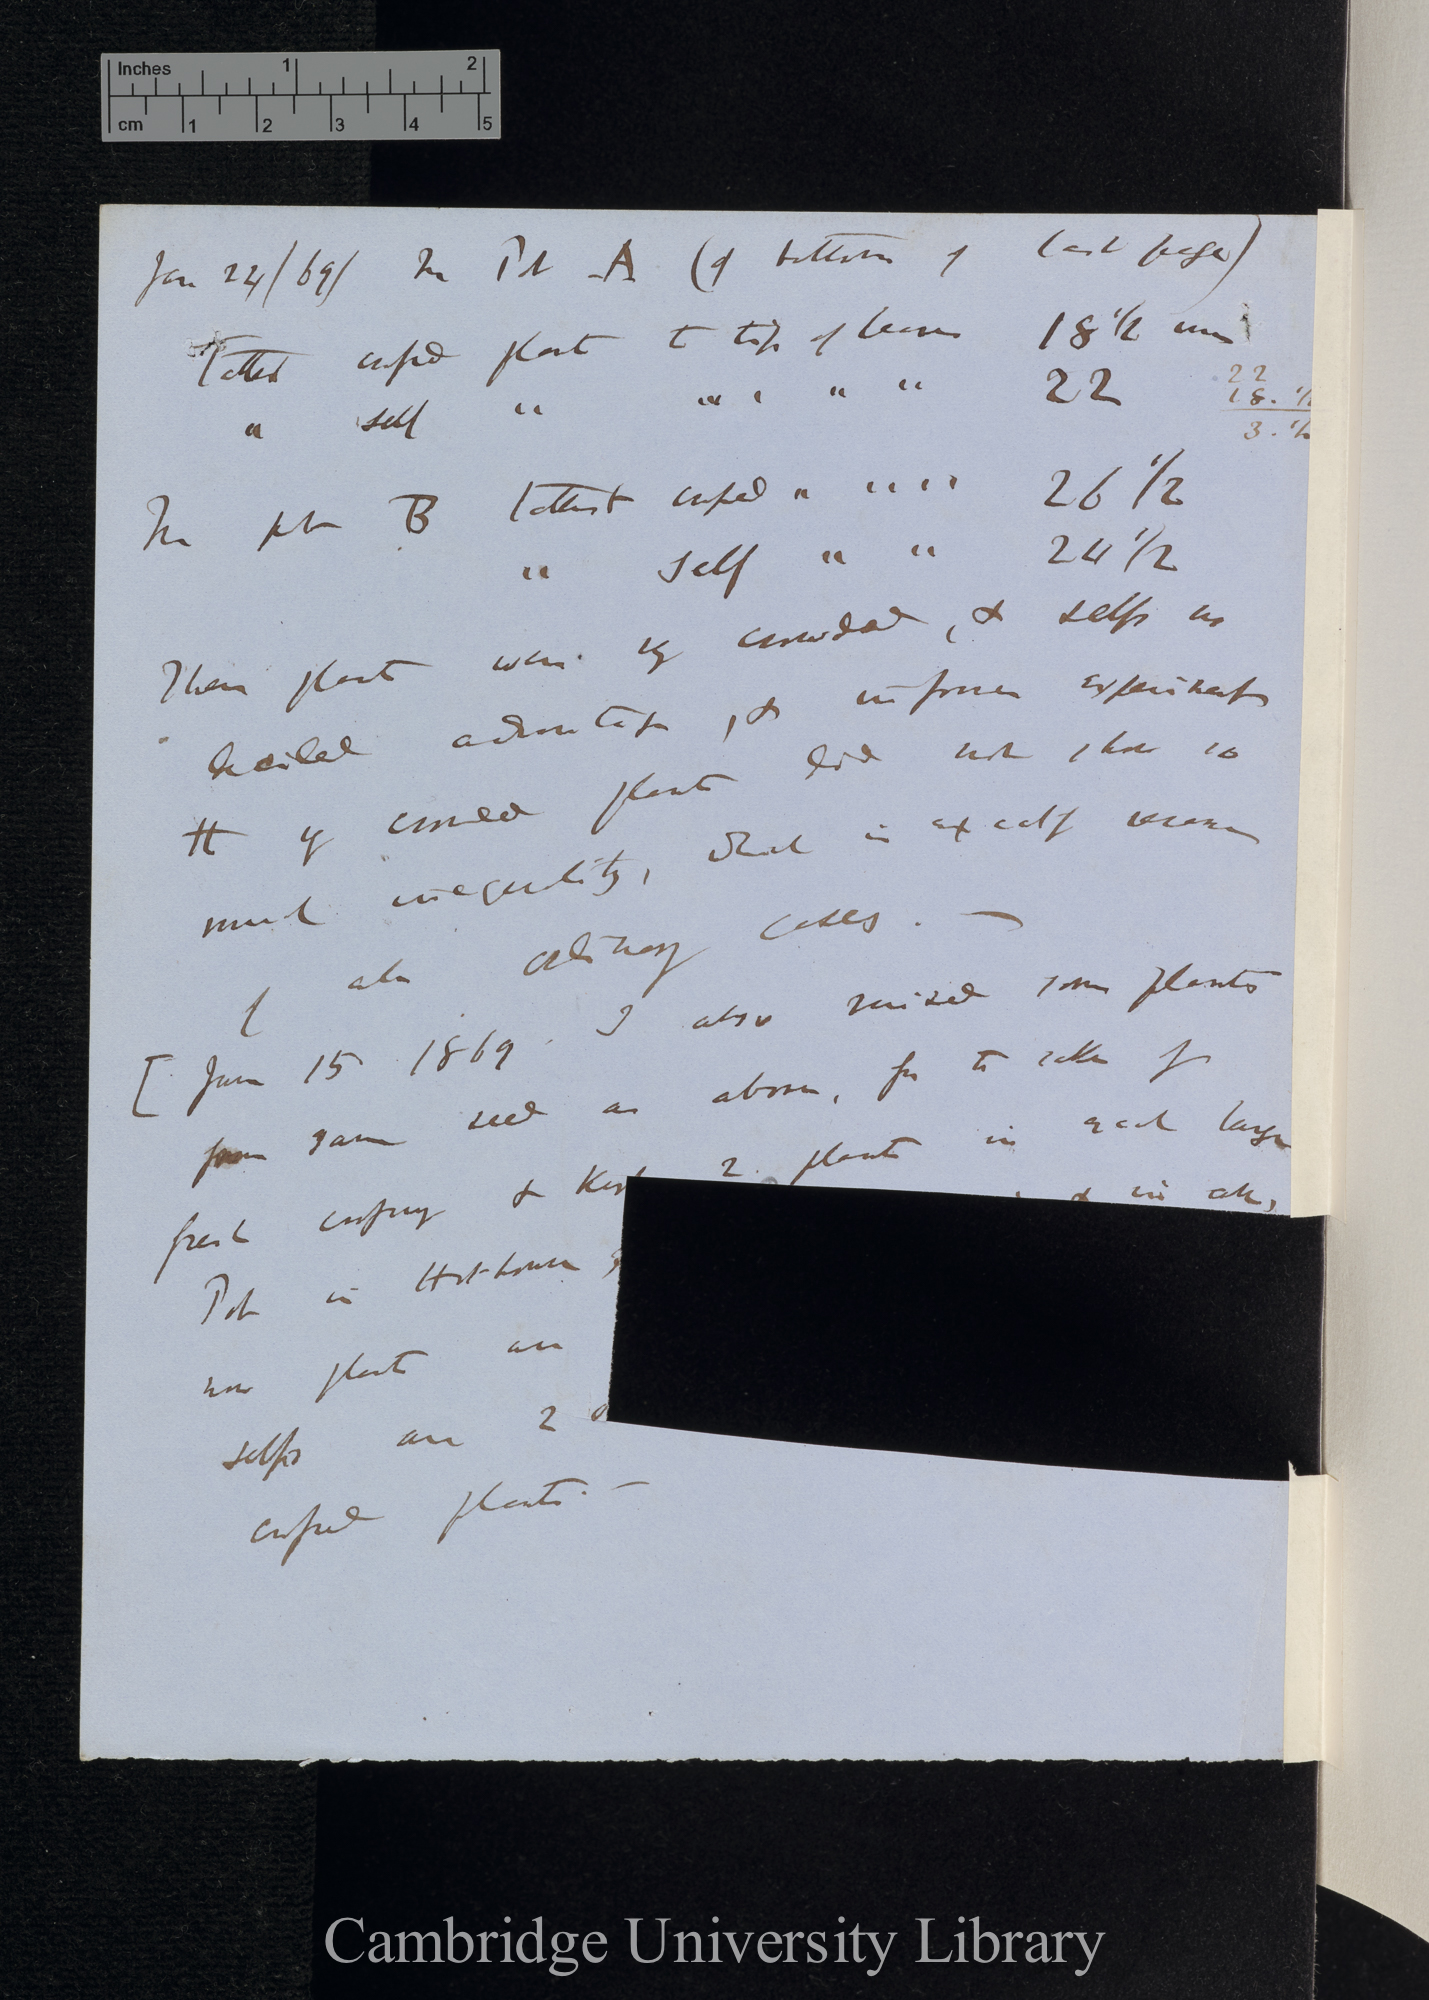 Inches 1 2
cm 1 2 3 4 5
Jan 24/69/ In Pot A (of bottom of last page)
Tallest crossed plant to tip of leaves 18 1/2 inches
" self " " " " " 22
22
18. 1/2
3. 1/2
In pot B tallest crossed " " " " 26 1/2
" self " " 24 1/2
These plants were vy crowded, & selfs no
decided advantage, & in former experiments
tt vy crowded plants did not show so
much inequality, which is exactly reverse
of all ordinary cases. —
[Jan 15 1869. I also raised some plants
from same seed as above, for the sake of
fresh crossing & kept 2 plants in each large
Pot in Hot-house & in all,
now plants are
selfs are 2
crossed plants. —
Cambridge University Library